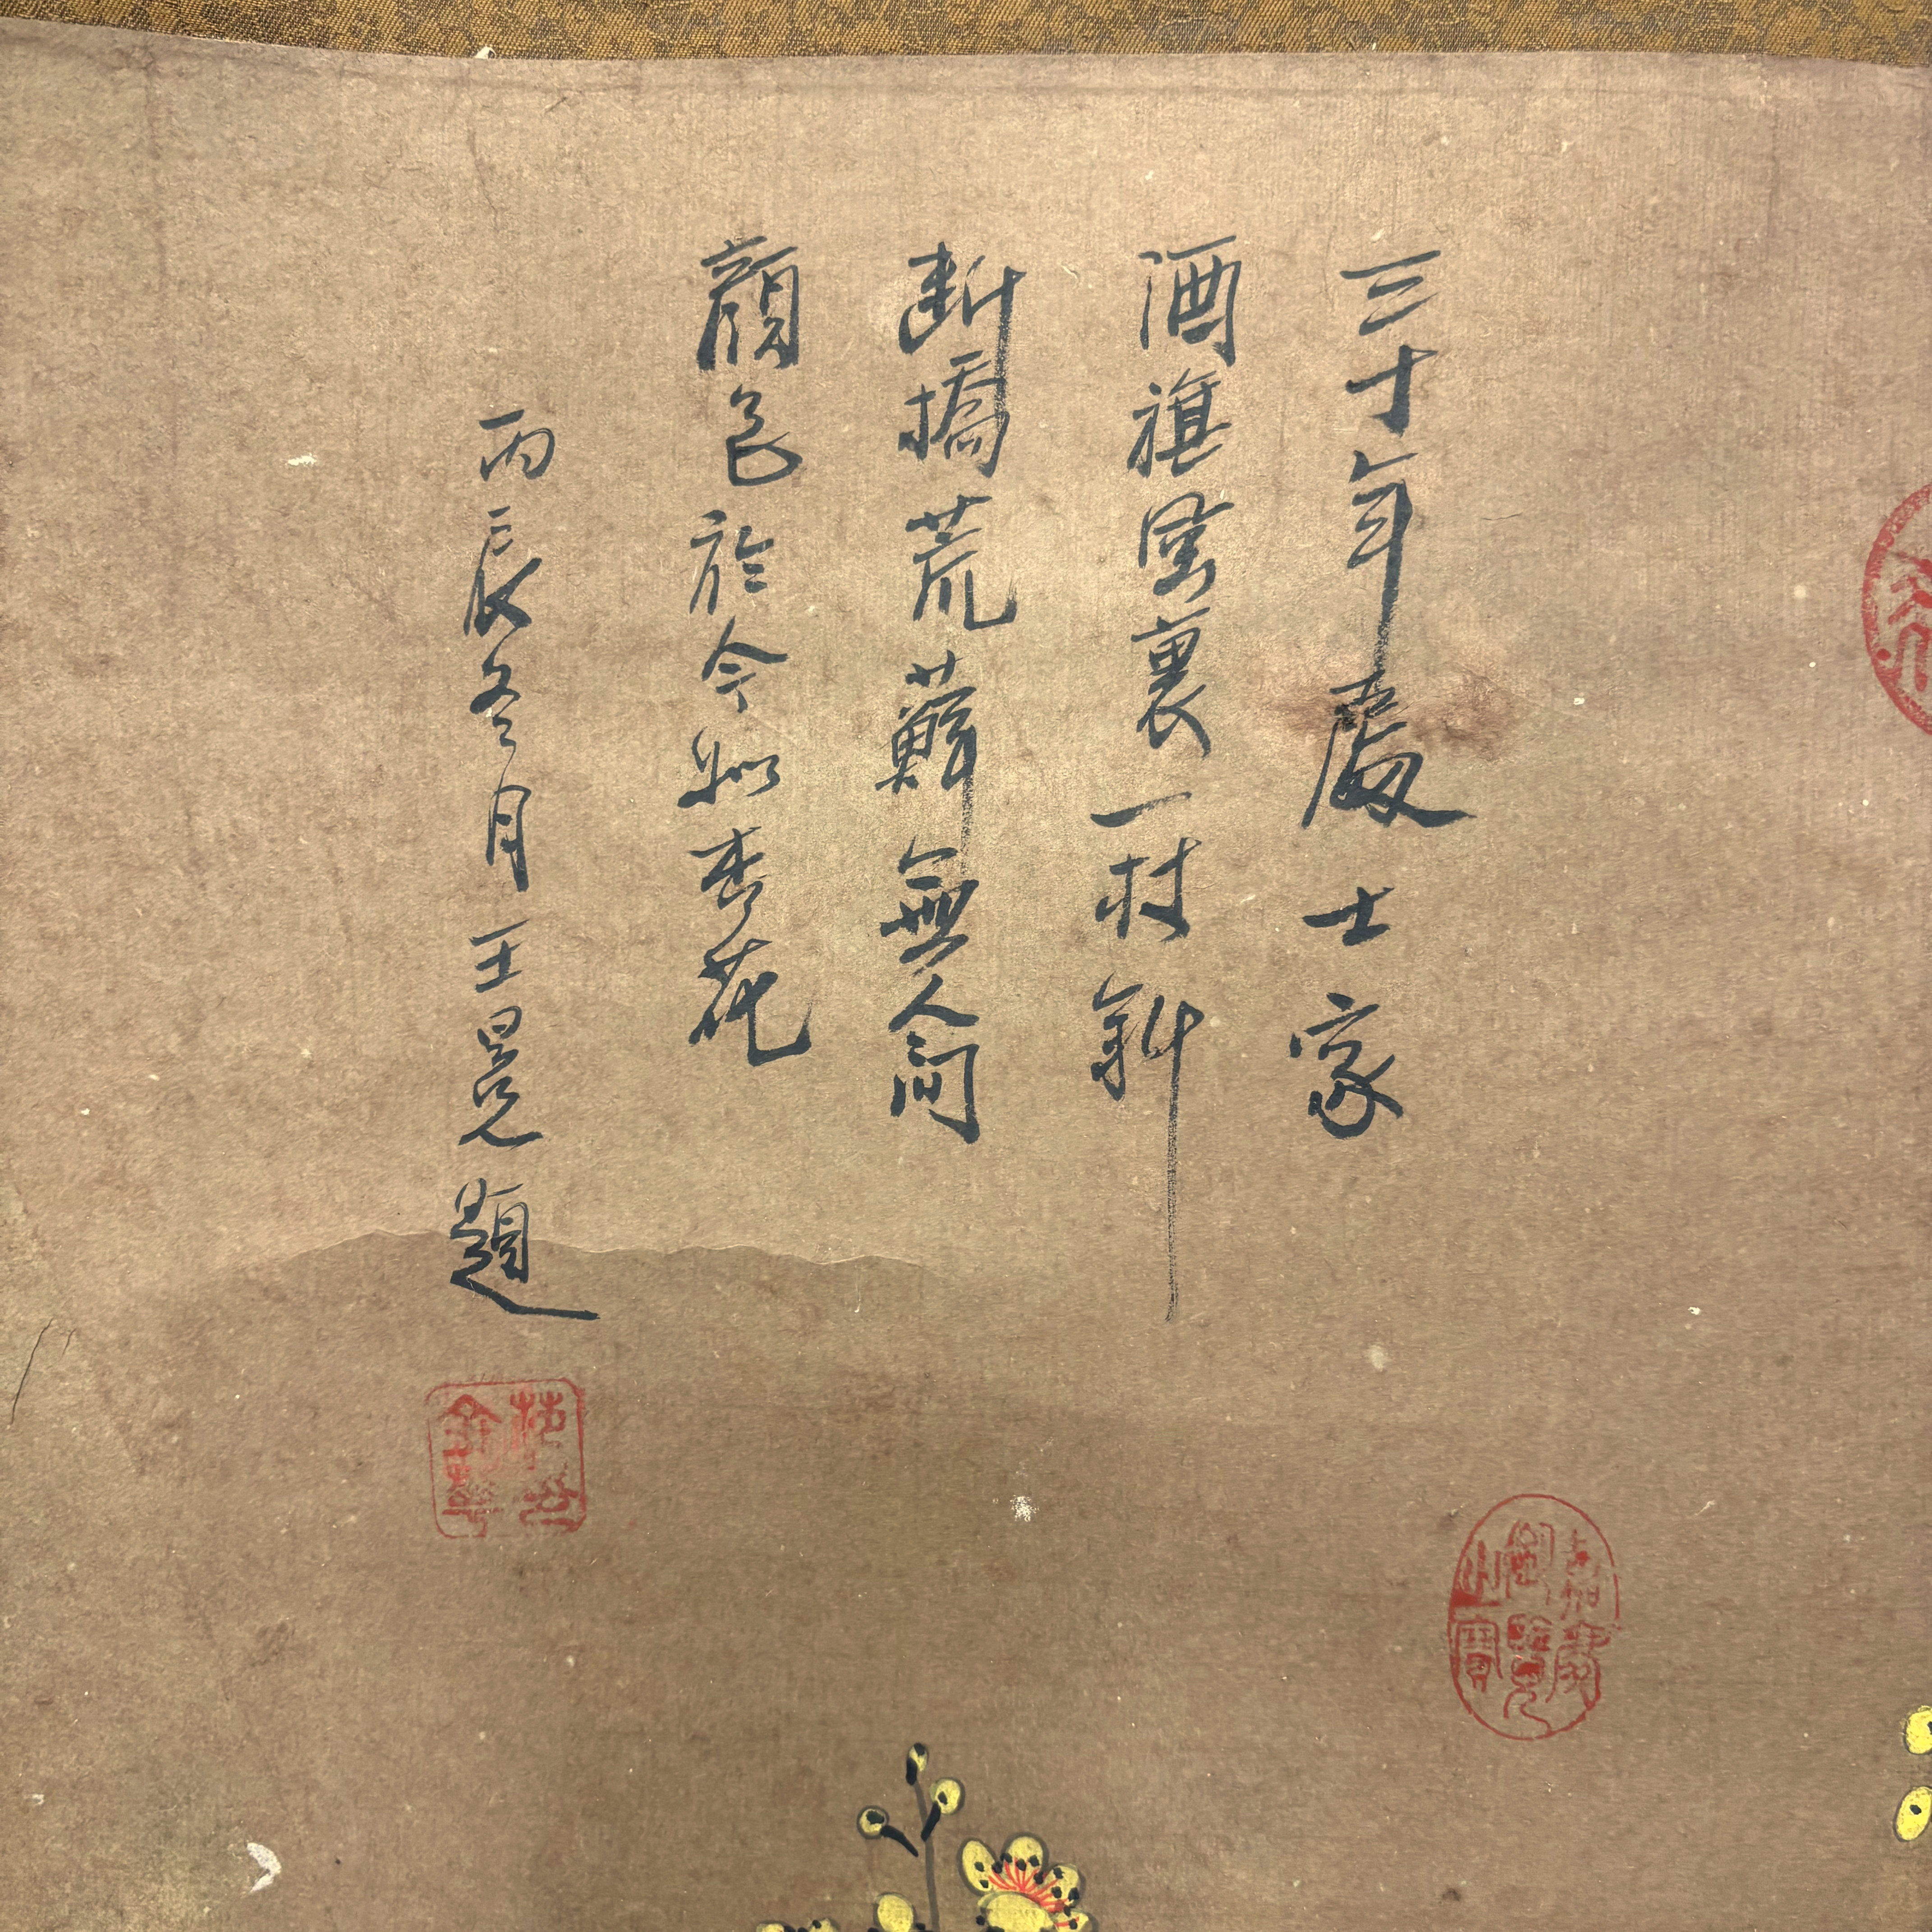 三十年處士家
酒旗風裏一村斜
断橋荒蘚無人問
顏色於今似杏花
丙辰冬月王冕題
嘉慶御覽之寶